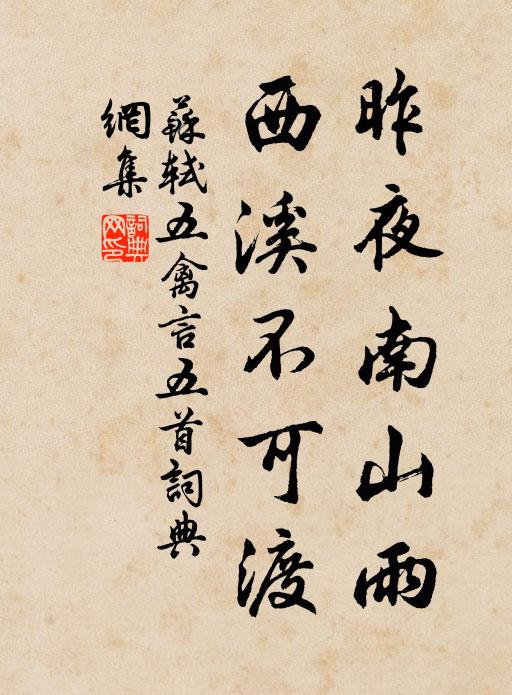 昨夜南山雨
西溪不可渡
蘇軾五禽言五首詞典
網集
詞典
网印